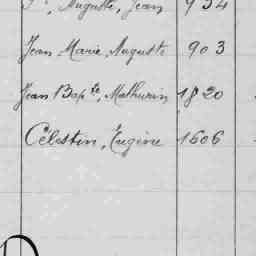 Auguste, Jean 934
Jean Marie, Auguste 903
Jean Bapte, Mathurin 1820
Célestin, Eugène 1606